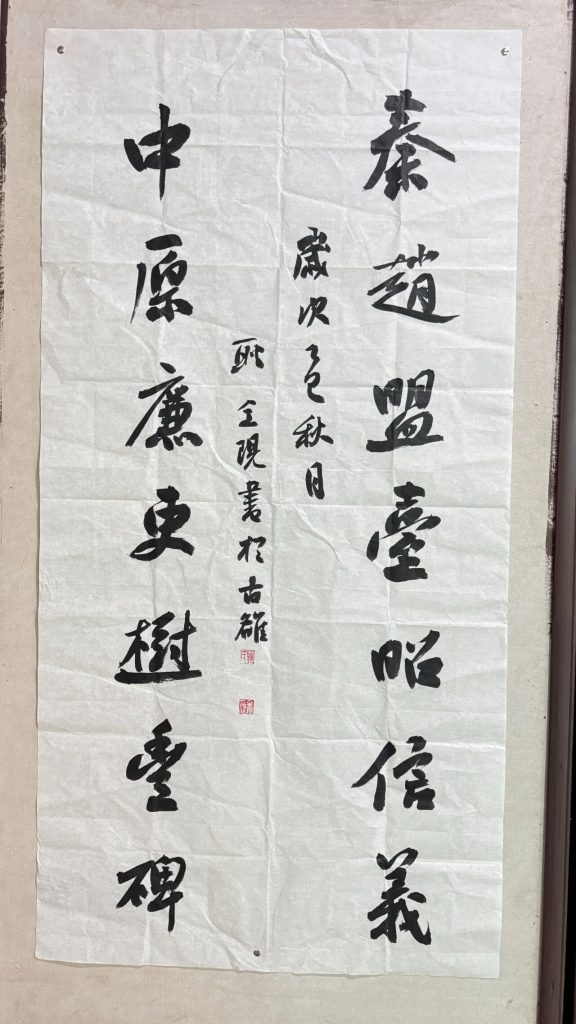 秦趙盟臺昭信義
歲次乙巳秋月
耿全現書於古雒
中原廉吏樹豐碑